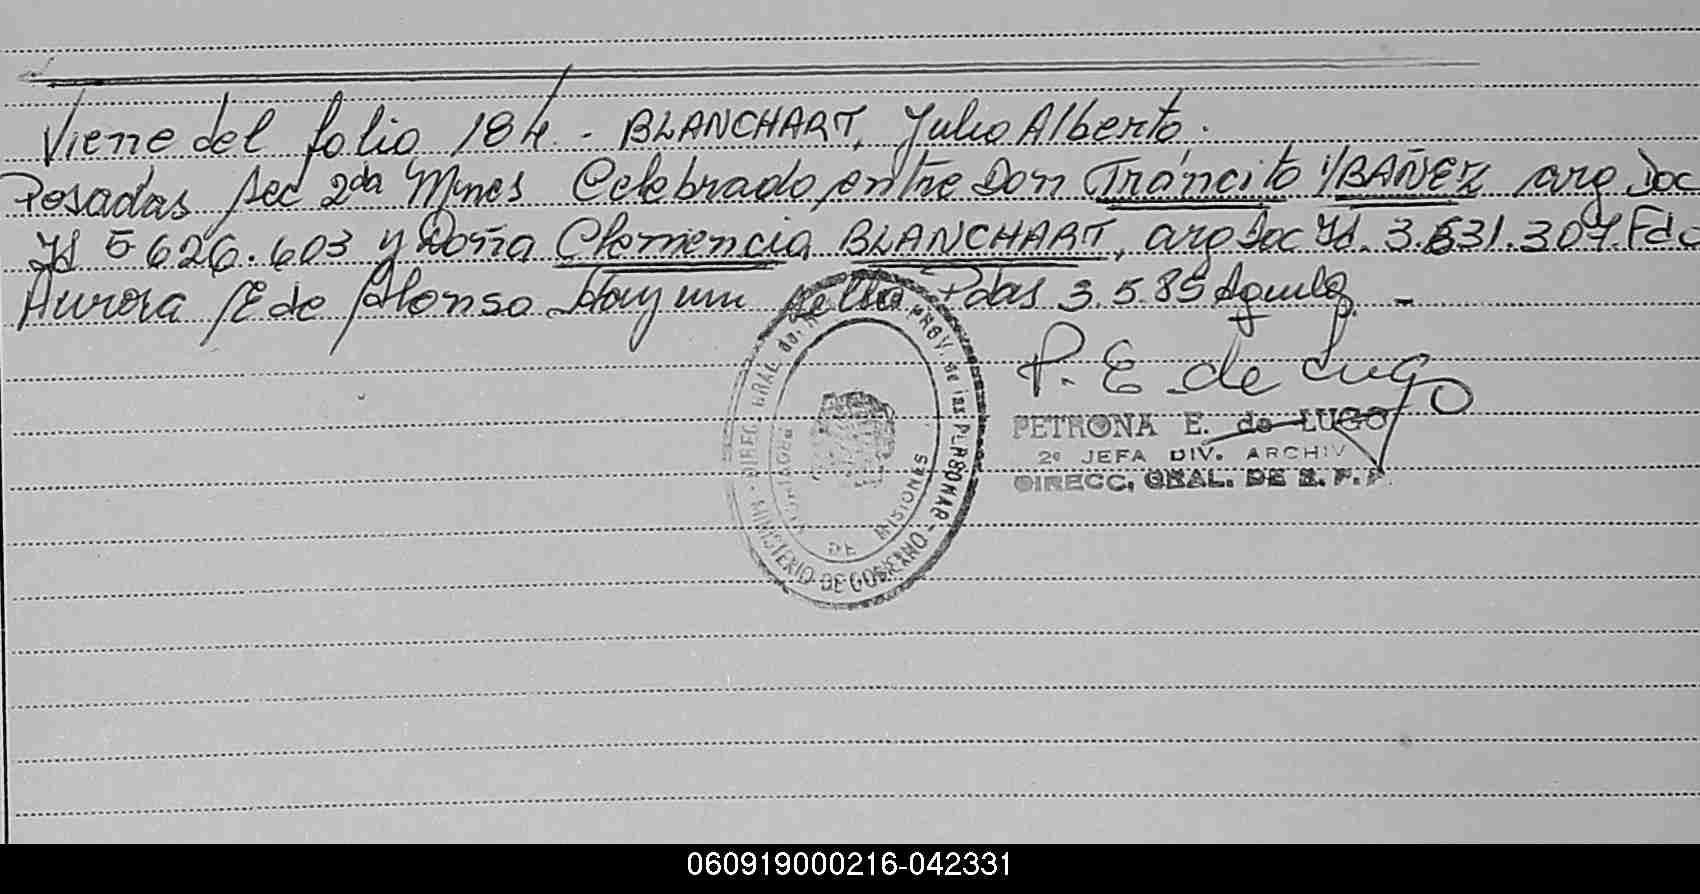 Viene del folio 184. - BLANCHART, Julio Alberto.
Posadas Sec 2da Mnes Celebrado entre Don Tráncito YBAÑEZ arg Doc
Id 5 626.603 y Doña Clemencia BLANCHART, arg Doc Id. 3.631.307. Fdo
Aurora E de Alonso Hay un sello Pdas 3.5.85
P. E de Lugo
PETRONA E. de LUGO
2º JEFA DIV. ARCHIV
DIRECC. GRAL. DE R. P. P.
DIREC. GRAL. de PROV. de las PERSONAS - MINISTERIO DE GOBIERNO
DE MISIONES
060919000216-042331